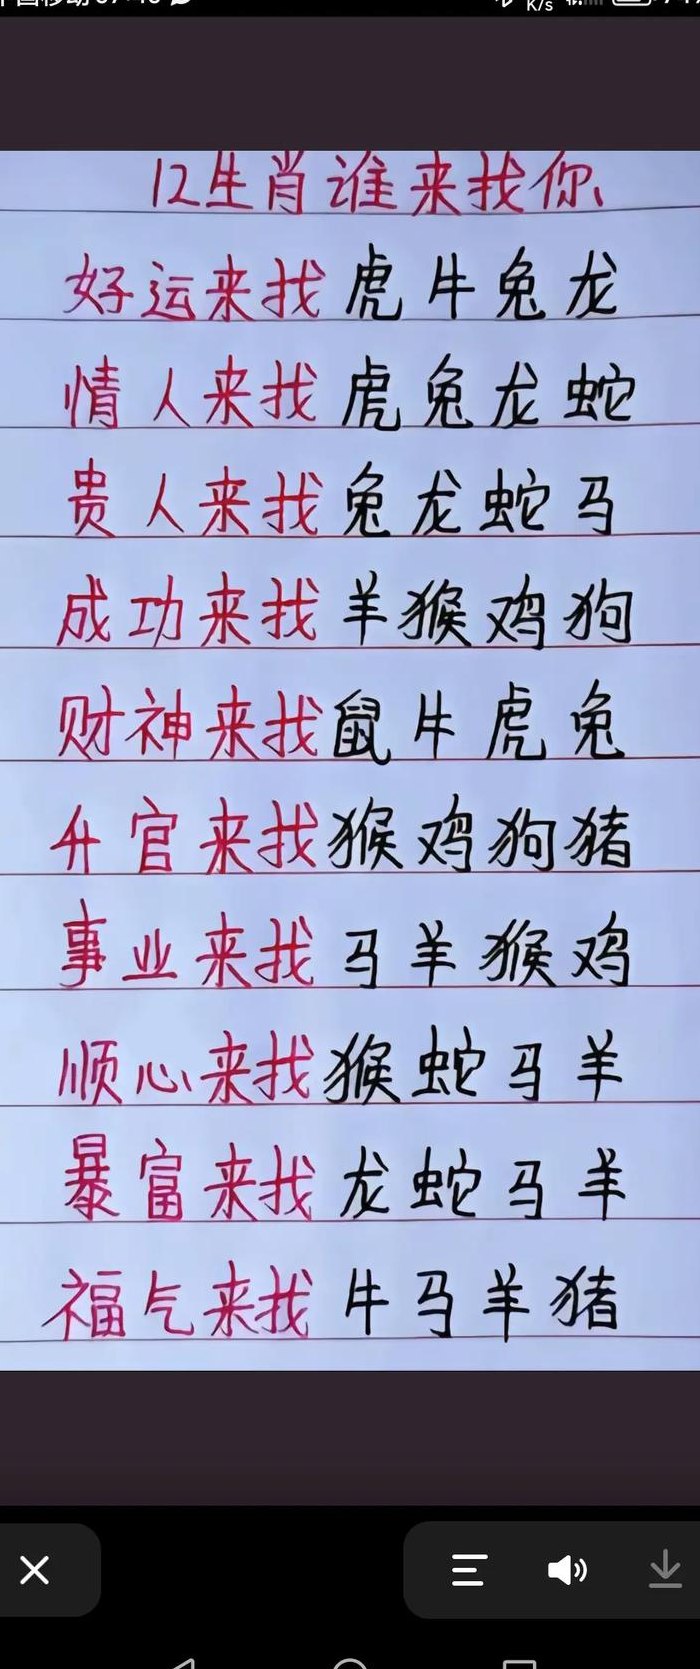 K/s
12生肖谁来找你
好运来找虎牛兔龙
情人来找虎兔龙蛇
贵人来找兔龙蛇马
成功来找羊猴鸡狗
财神来找鼠牛虎兔
升官来找猴鸡狗猪
事业来找马羊猴鸡
顺心来找猴蛇马羊
暴富来找龙蛇马羊
福气来找牛马羊猪